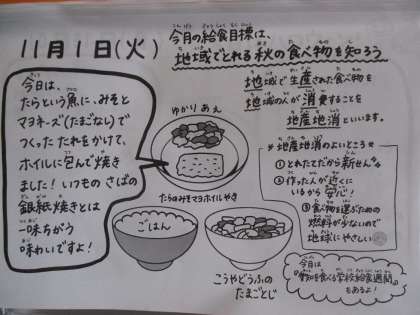 11月1日(火)
今月の給食目標は、
地域でとれる秋の食べ物を知ろう
今日は、
たらという魚に、みそと
マヨネーズ(たまごなし)で
つくった たれをかけて、
ホイルに包んで焼き
ました！いつもの さばの
銀紙焼きとは
一味ちがう
味わいですよ！
ゆかりあえ
たらのみそマヨホイルやき
ごはん
こうやどうふの
たまごとじ
地域で生産された食べ物を
地域の人が消費することを
地産地消といいます。
地産地消のよいところ
①とれたてだから新せん
②作った人が近くに
いるから安心！
③食べ物を運ぶための
燃料が少ないので
地球にやさしい
今月は
を食べる学校給食週間
もあるよ！